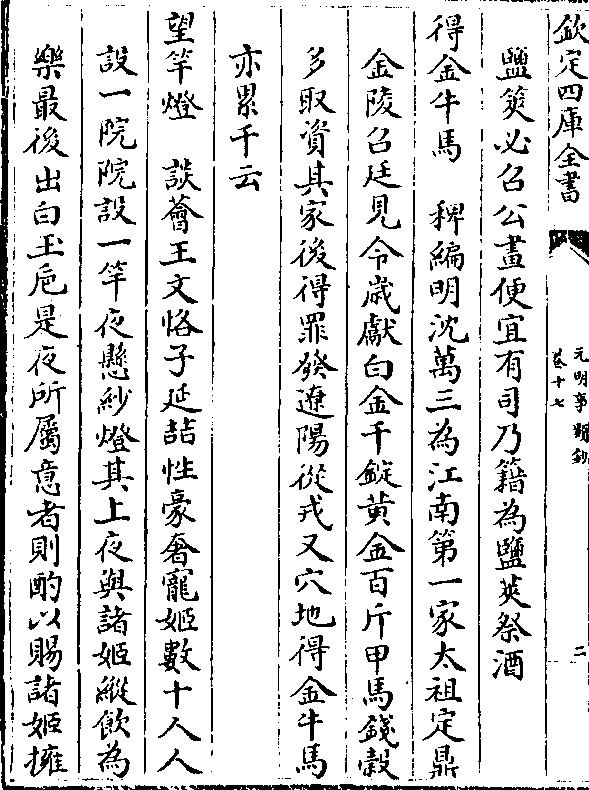 欽定四庫全書
元明事類鈔
卷十七
二
鹽筴必召公畫便宜有司乃籍為鹽筴祭酒
得金牛馬　稗編明沈萬三為江南第一家太祖定鼎
金陵召廷見令歲獻白金千錠黄金百斤甲馬錢穀
多取資其家後得罪發遼陽從戎又穴地得金牛馬
亦累千云
望竿燈　談薈王文恪子延喆性豪奢寵姬數十人人
設一院院設一竿夜懸紗燈其上夜與諸姬縱飲為
樂最後出白玉巵是夜所屬意者則酌以賜諸姬擁